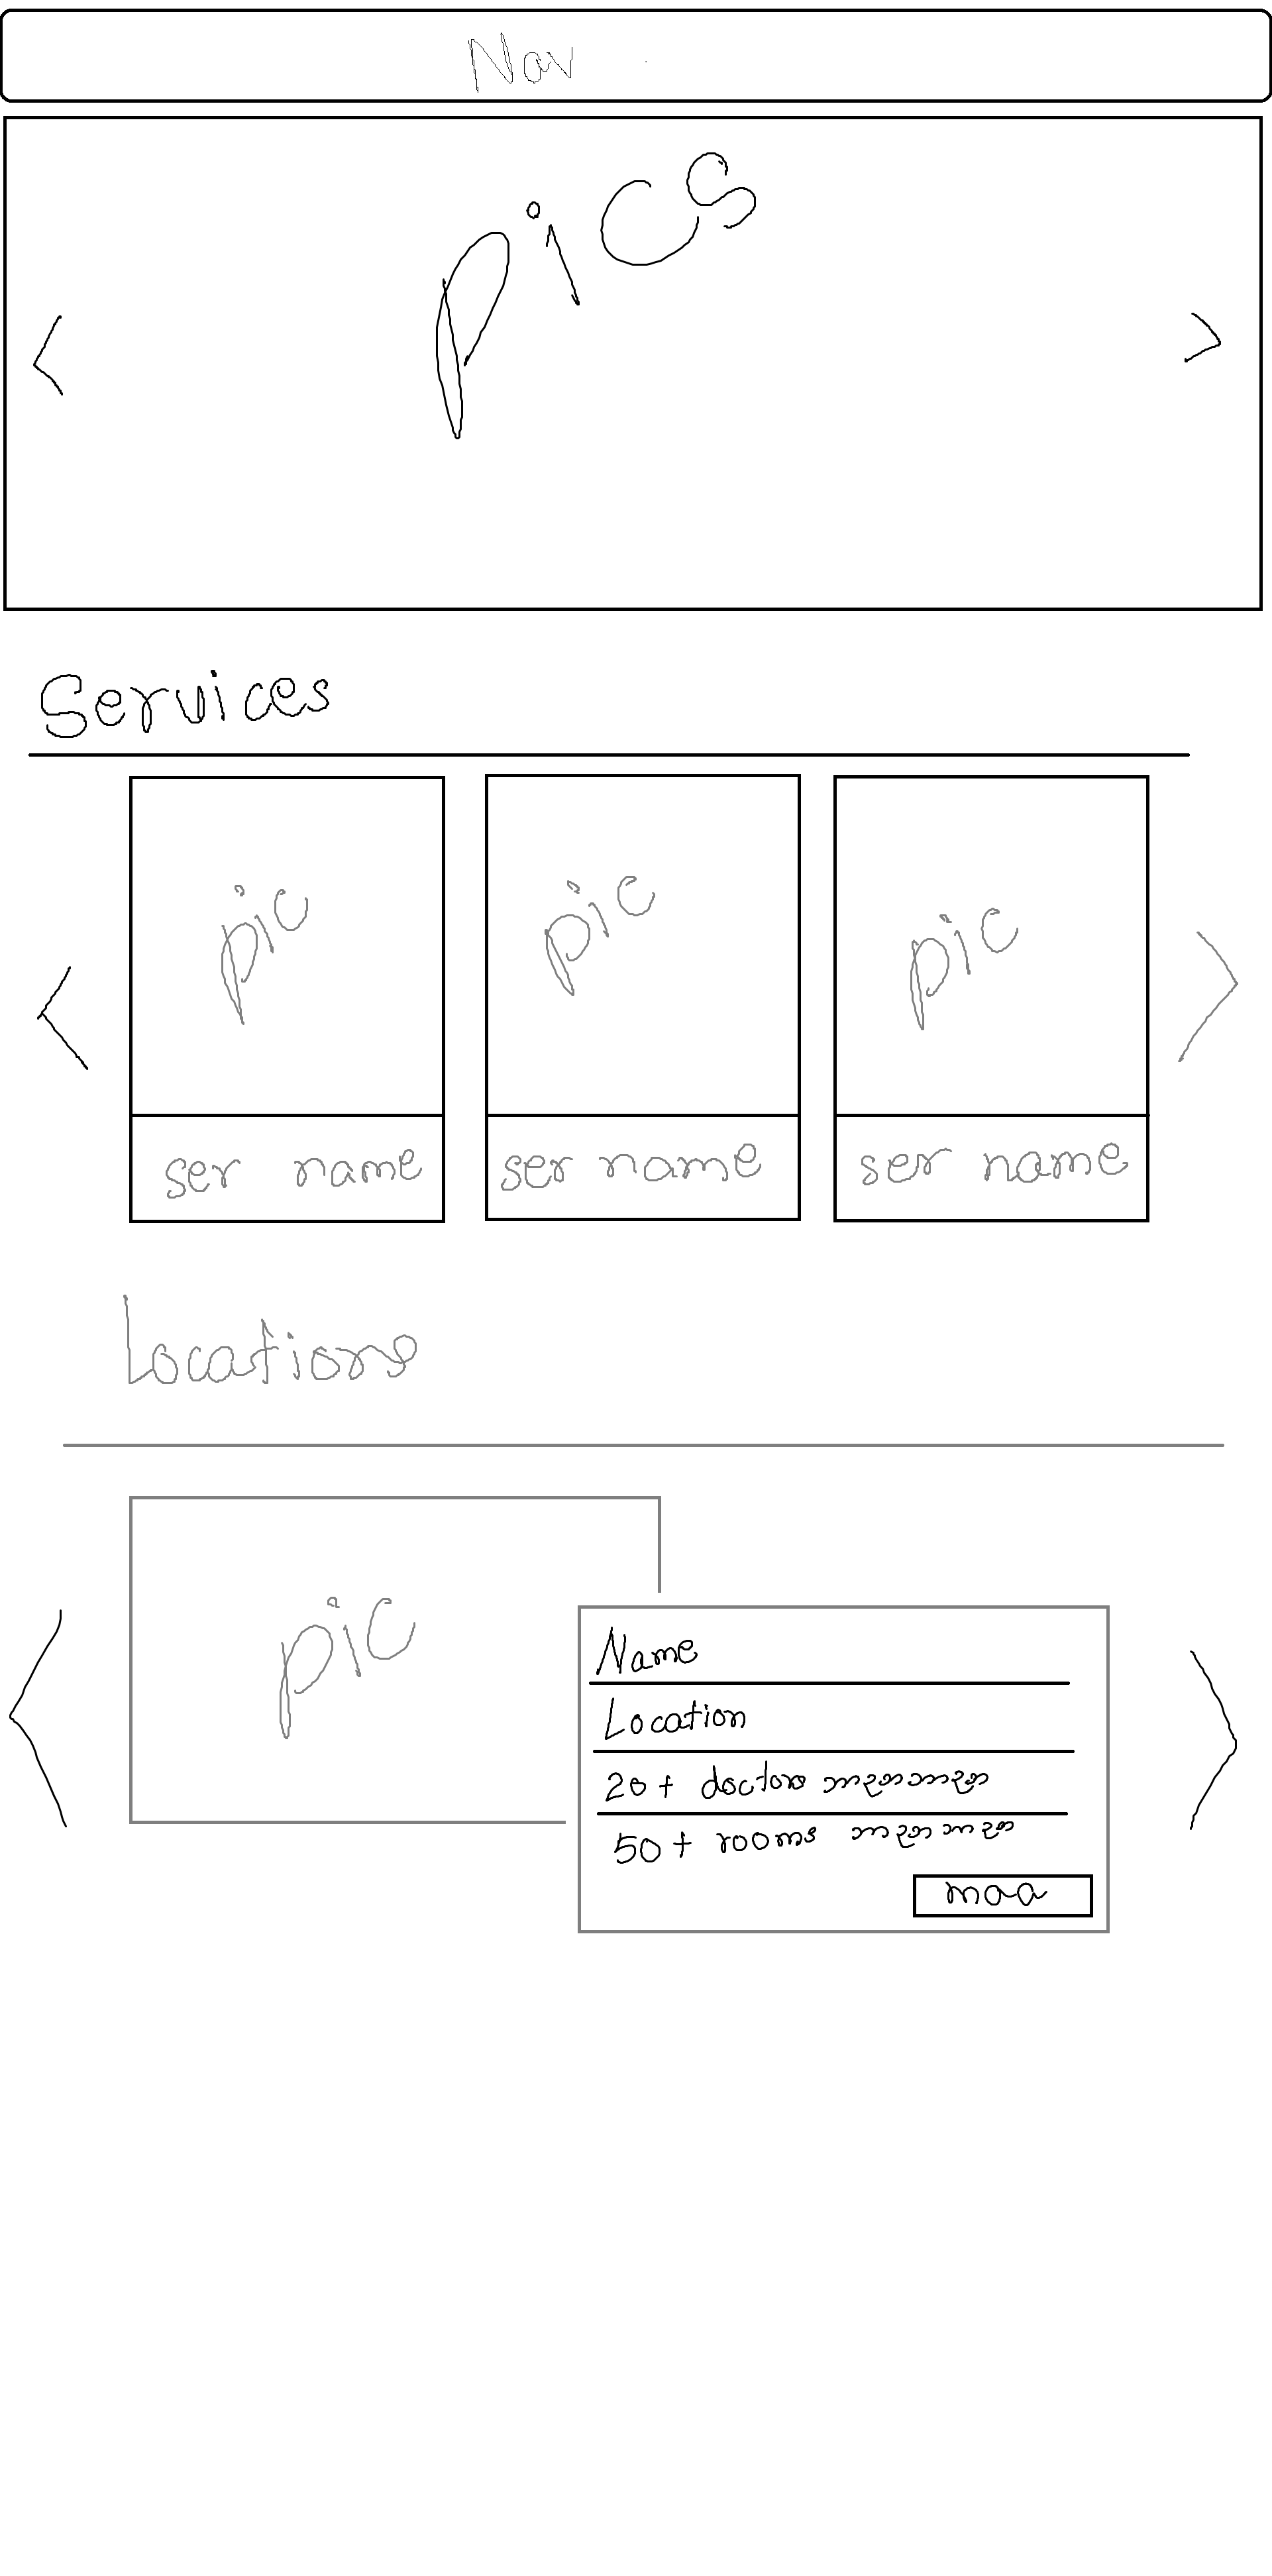 Nav
pics
Services
pic pic pic
ser name ser name ser name
Locations
pic
Name
Location
20+ doctors
50+ rooms